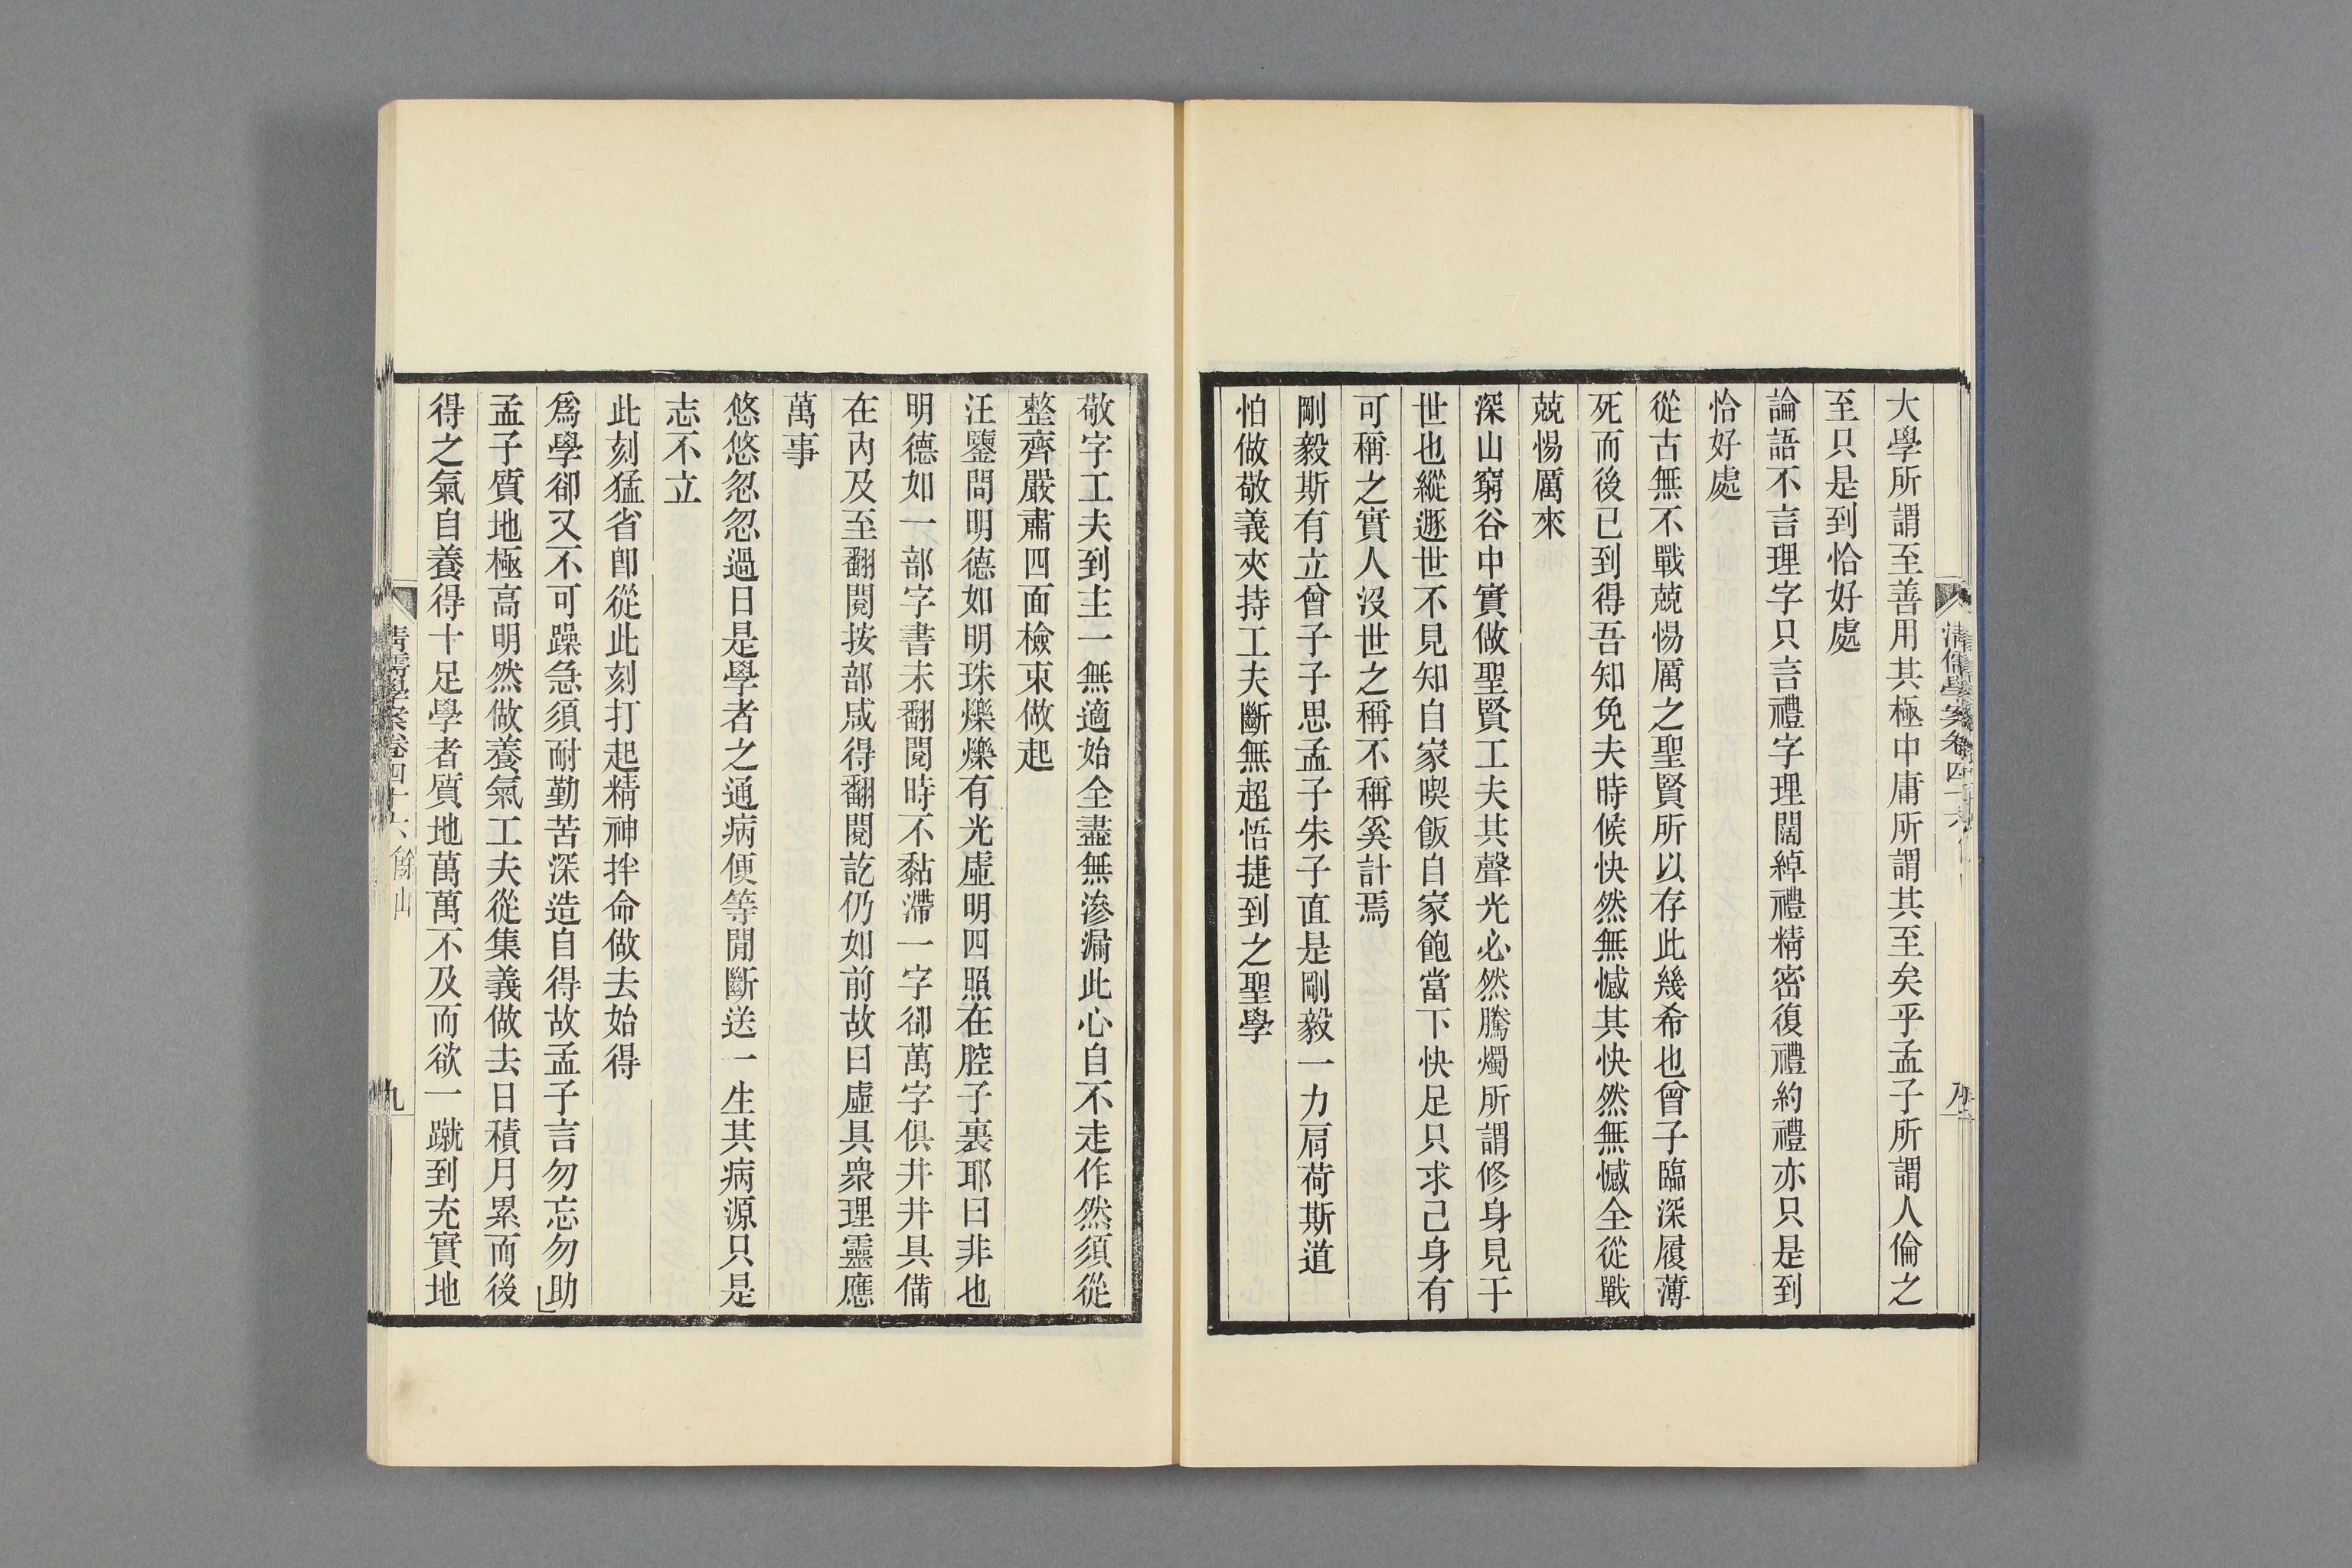 大學所謂至善用其極中庸所謂其至矣乎孟子所謂人倫之
至只是到恰好處
論語不言理字只言禮字理闊綽禮精密復禮約禮亦只是到
恰好處
從古無不戰兢惕厲之聖賢所以存此幾希也曾子臨深履薄
死而後已到得吾知免夫時候快然無憾其快然無憾全從戰
兢惕厲來
深山窮谷中實做聖賢工夫其聲光必然騰燭所謂修身見于
世也縱遯世不見知自家喫飯自家飽當下快足只求己身有
可稱之實人沒世之稱不稱奚計焉
剛毅斯有立曾子子思孟子朱子直是剛毅一力肩荷斯道
怕做敬義夾持工夫斷無超悟捷到之聖學
敬字工夫到主一無適始全盡無滲漏此心自不走作然須從
整齊嚴肅四面檢束做起
汪鑒問明德如明珠爍爍有光虛明四照在腔子裏耶曰非也
明德如一部字書未翻閱時不黏滯一字卻萬字俱井井具備
在內及至翻閱按部咸得翻閱訖仍如前故曰虛具衆理靈應
萬事
悠悠忽忽過日是學者之通病便等閒斷送一生其病源只是
志不立
此刻猛省卽從此刻打起精神拌命做去始得
爲學卻又不可躁急須耐勤苦深造自得故孟子言勿忘勿助
孟子質地極高明然做養氣工夫從集義做去日積月累而後
得之氣自養得十足學者質地萬萬不及而欲一蹴到充實地
清儒學案卷四十六 餘山
九